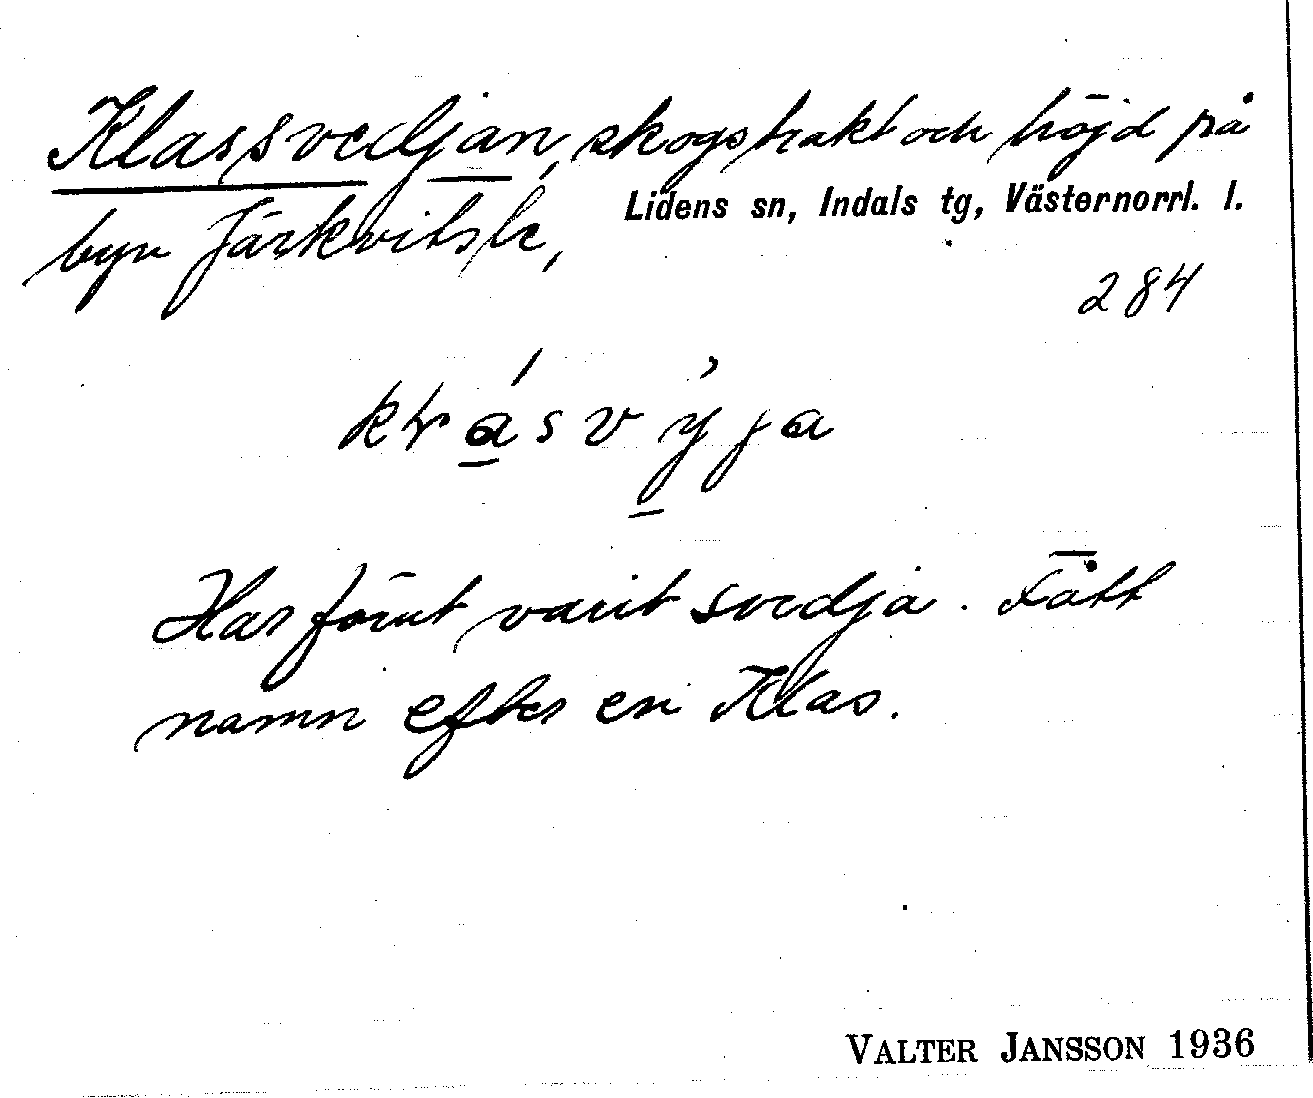 Klassvedjan, skogstrakt och höjd på
byn Järkvitsle, Lidens sn, Indals tg, Västernorrl. l.
284
Har förut varit svedja. Fått
namn efter en Klas.
VALTER JANSSON 1936